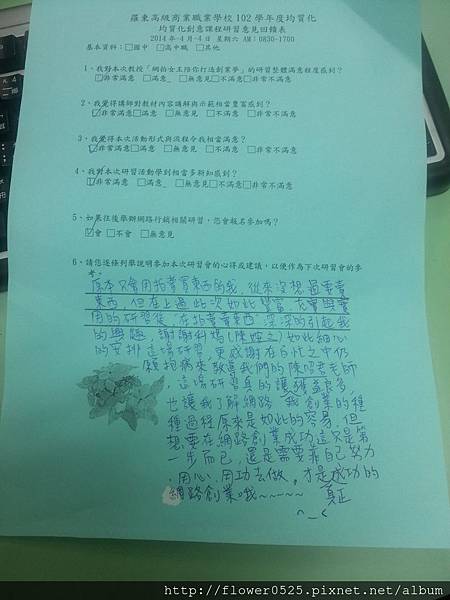 羅東高級商業職業學校 102 學年度均質化
均質化創意課程研習意見回饋表
2014 年-4 月-4 日 星期六 AM:0830-1700
基本資料:□國中 □高中職 □其他
1、我對本次教授「網拍女王陪你打造創業夢」的研習整體滿意程度感到?
☑非常滿意 □滿意 □無意見□不滿意□非常不滿意
2、我覺得講師對教材內容講解與示範相當豐富感到?
☑非常滿意□滿意 □無意見 □不滿意 □非常不滿意
3、我覺得本次活動形式與流程令我相當滿意?
☑非常滿意□滿意 □無意見 □不滿意□非常不滿意
4、我對本次研習活動學到相當多新知感到?
☑非常滿意□滿意 □無意見□不滿意□非常不滿意
5、如果往後舉辦網路行銷相關研習,您會報名參加嗎?
☑會 □不會 □無意見
6、請您逐條列舉說明參加本次研習會的心得或建議,以便作為下次研習會的參
考。
原本只會用拍賣買東西的我,從來沒想過要賣
東西,但在上過此次如此豐富、充實與實
用的研習後"在拍賣賣東西"深深的引起我
的興趣,謝謝科媽(陳姿之)如此細心
的安排這場研習,更感謝在百忙之中仍
願抱病來教導我們的陳昭君老師
,這場研習真的讓獲益良多,
也讓我了解網路 我創業的種
種過程原來是如此的容易,但
想要在網路創業成功這只是第
一步而已,還是需要靠自己努力
、用心、用功去做,才是成功的
網路創業哦~~~~~ 真正
^_<
http://flower0525.pixnet.net/album